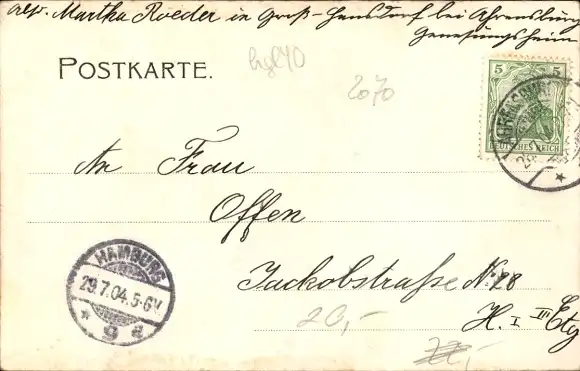 Martha Roeder in Groß-Hansdorf bei Ahrensburg
Genesungsheim
POSTKARTE.
hgl40
2070
5 5
DEUTSCHES REICH
AHRENSBURG
An Frau
Offen
Jackobstraße No 28
H. I III Etg
HAMBURG
29.7.04.5-6N
* 9 a
20,-